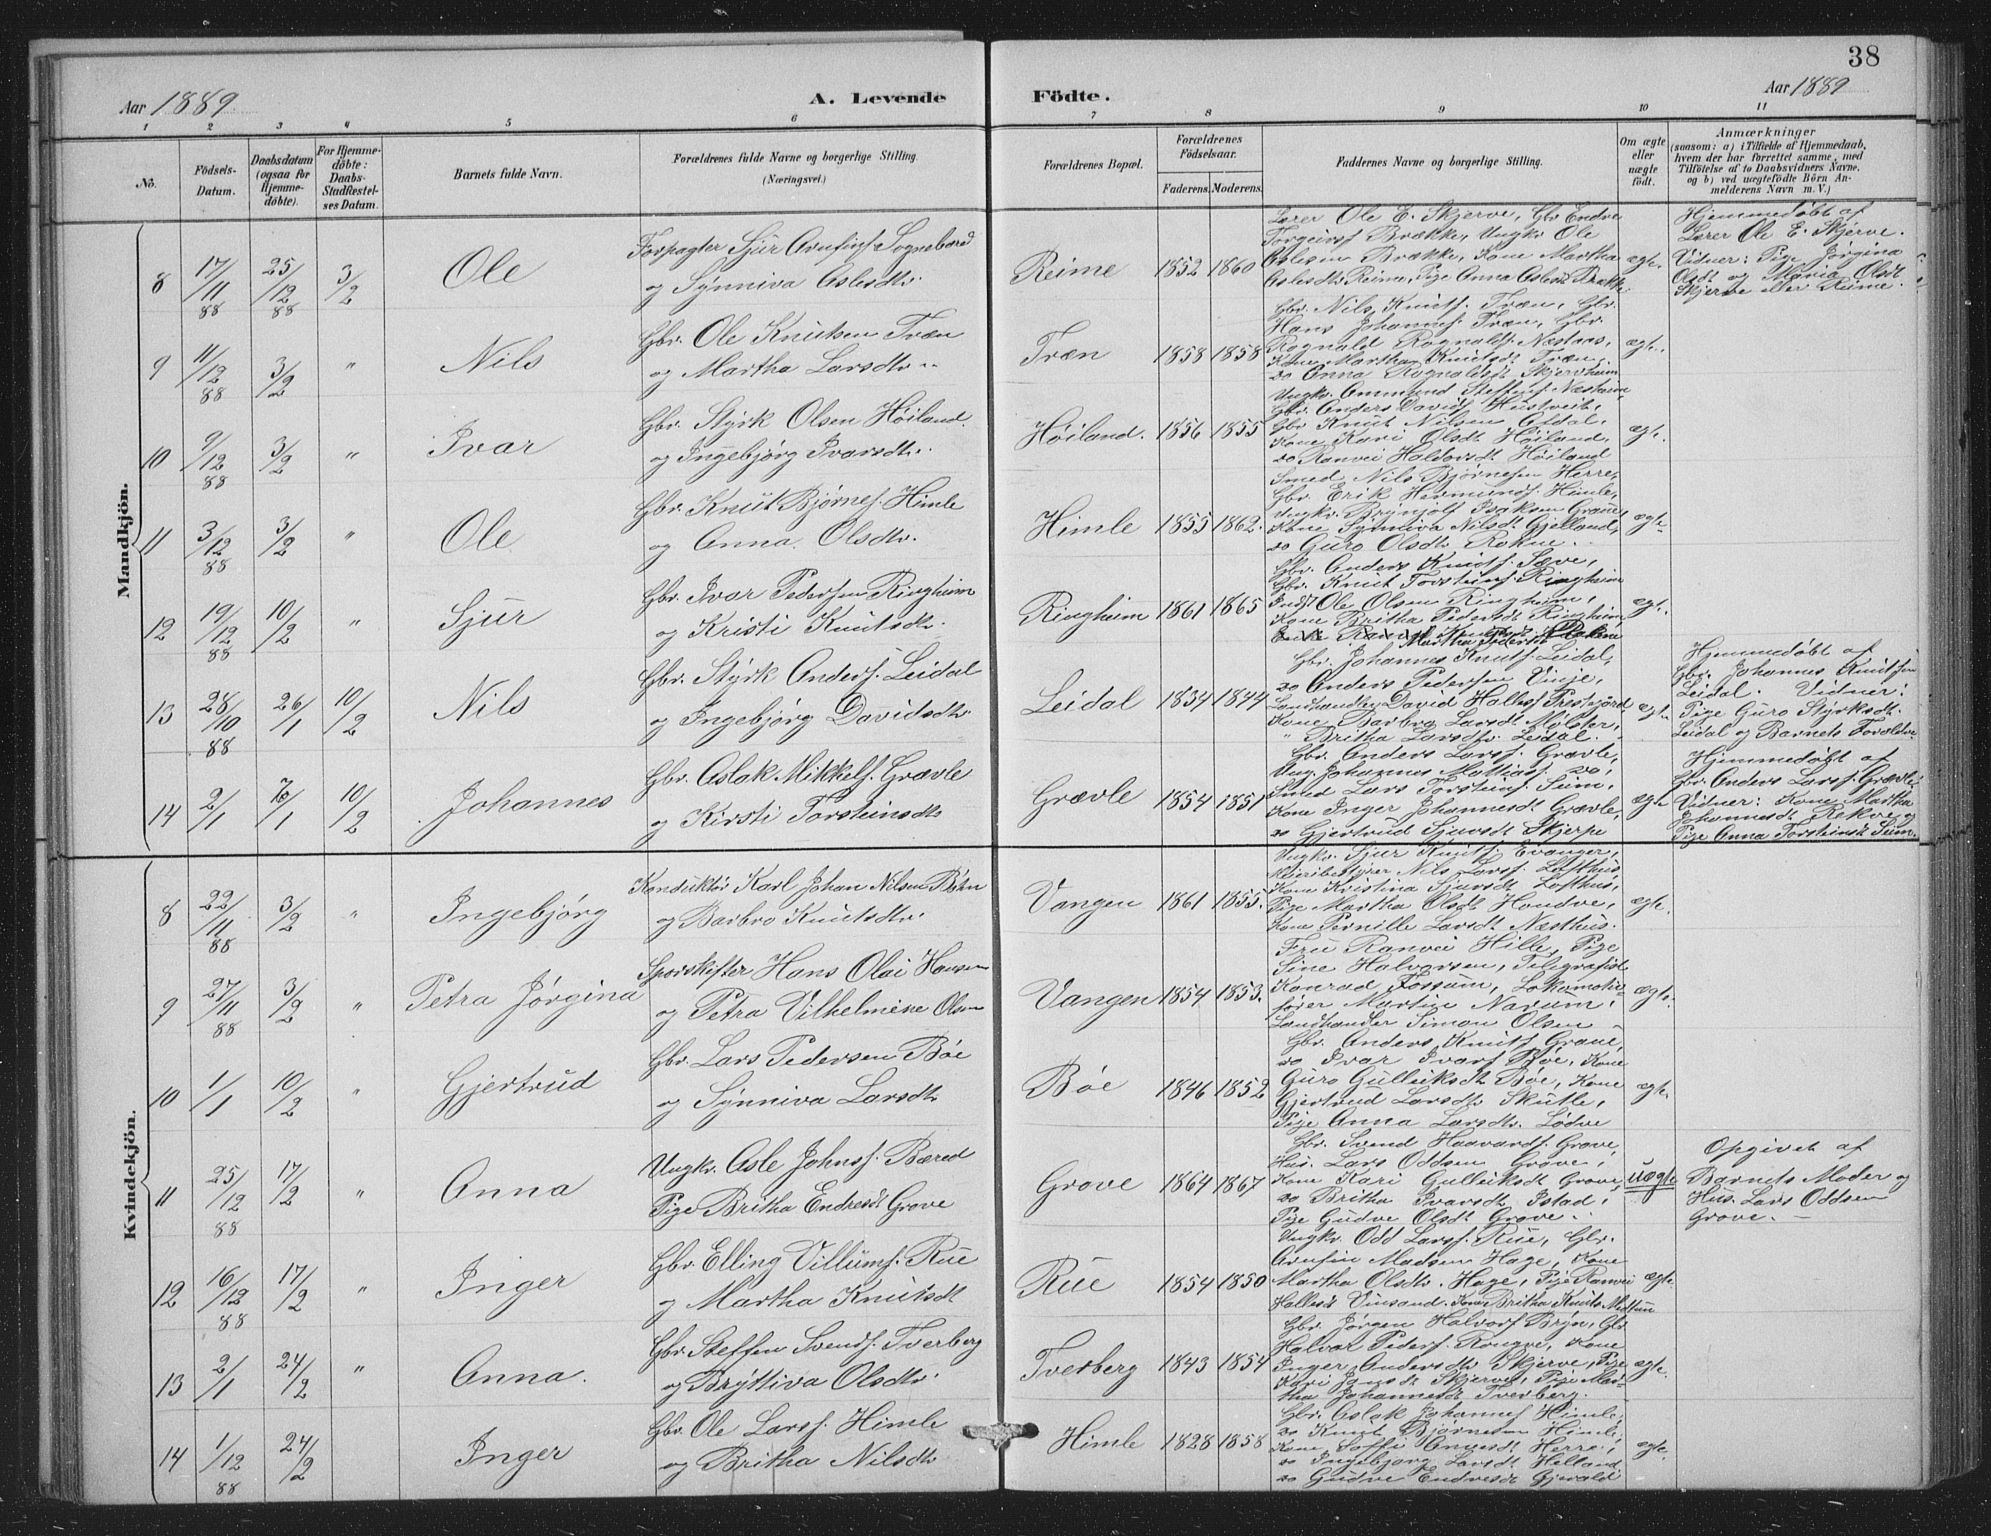 38
Aar 1889
A. Levende
Födte.
Aar 1889
1 2 3 4 5 6 7 8 9 10 11
No.
Födsels-Datum.
Daabsdatum (ogsaa for Hjemme-döbte).
For Hjemme-döbte: Daabs-Stadfæstel-ses Datum.
Barnets fulde Navn.
Forældrenes fulde Navne og borgerlige Stilling.
(Næringsvei.)
Forældrenes Bopæl.
Forældrenes Födselsaar.
Faderens. Moderens.
Faddernes Navne og borgerlige Stilling.
Om ægte eller uægte födt.
Anmærkninger
(saasom: a) i Tilfælde af Hjemmedaab,
hvem der har forrettet samme, med
Tilföielse af to Daabsvidners Navne,
og b) ved uægtefödte Börn An-
melderens Navn m. V.)
Mandkjön.
8 17/11 88 25/12 88 3/2 Ole
Forpagter Sjur Arnfins. Sognebæd
og Synniva Aslesdtr.
Reime 1852 1860
Lærer Ole E. Skjerve, Gbr Endre
Torgeirss Brække, Ungkr Ole
Aslesen Brække, Kone Martha
Aslesdtr Reime, Pige Anna Aslesdt Brække
ægte.
Hjemmedøbt af
Lærer Ole E. Skjerve.
Vidner: Pige Jørgina
Olsdt og Maria Olsdt
Skjerve eller Reime.
9 11/12 88 3/2 " Nils
Gbr. Ole Knutsen Træn
og Martha Larsdtr.
Træn 1858 1858
Gbr. Nils Knuts. Træn, Gbr.
Hans Johannes. Træn, Gbr.
Rognald Rognalds. Næstaas,
Kone Martha Knutsdt Træn,
do Anna Rognaldsdt Skjervheim
ægte.
10 9/12 88 3/2 " Ivar
Gbr. Styrk Olsen Høiland.
og Ingebjørg Ivarsdtr.
Høiland. 1856 1855
Ungkr. Ammund Steffens. Næsheim,
Gbr. Anders Davids. Hustveit,
Gbr Knut Nilsen Afdal,
Kone Kari Olsdt Høiland,
do Ranvei Haldorsdt Høiland
ægte.
11 3/12 88 3/2 " Ole
Gbr. Knut Bjørnes. Himle
og Anna Olsdtr.
Himle 1855 1862.
Smed Nils Bjørnesen Herre,
Gbr. Erik Hermunds. Himle,
Ungkr. Brynjolf Isaksen Graue,
Kone Synniva Nilsdt Gjelland,
do Guro Olsdtr Rokne.
ægte
12 19/12 88 10/2 " Sjur
Gbr. Ivar Pedersen Ringheim
og Kristi Knutsdtr.
Ringheim 1861 1865
Gbr. Anders Knuts. Sæve,
Gbr. Knut Torsteins. Ringheim
Inds. Ole Olsen Ringheim,
Kone Britha Pedersdt Ringheim,
Martha Pedersdt Rokne
ægte.
13 28/10 88 26/1 10/2 Nils
Gbr. Styrk Anders. Leidal
og Ingebjørg Davidsdtr.
Leidal 1834 1844
Gbr. Johannes Knuts. Leidal,
do Anders Pedersen Vinje,
Landhandler David Halles. Prestejord
Kone Barbra Larsdt Mølster,
" Britha Larsdtr Leidal.
ægte.
Hjemmedøbt af
Gbr. Johannes Knutsen
Leidal. Vidner:
Pige Guro Styrksdt.
Leidal og Barnets Forældre
14 2/1 /1 10/2 Johannes
Gbr. Aslak Mikkels. Grævle
og Kirsti Torsteinsdtr
Grævle 1854 1851
Gbr. Anders Larss. Grævle,
Ung. Johannes Mattias. do,
Smed Lars Torsteins. Seim,
Kone Inger Johannesdt Grævle,
do Gjertrud Sjursdt Skjerpe
ægte
Hjemmedøbt af
Gbr. Anders Larss. Grævle
Vidner: Kone Martha
Johannesdt Rekve og
Pige Anna Torsteinsdt Seim.
Kvindekjön.
8 22/11 88 3/2 " Ingebjørg
Konduktør Karl Johan Nilsen
og Barbro Knutsdtr.
Vangen 1861 1855.
Ungkr. Sjur Knuts. Evanger,
Meieribestyrer Nils Larss. Lofthus,
Kone Kristina Sjursdt Lofthus,
Pige Martha Olsdt Hondve,
Kone Pernille Larsdt Næsthus.
ægte.
9 27/11 88 3/2 " Petra Jørgina
Sporskifter Hans Olai Hansen
og Petra Vilhelmine Olsen
Vangen 1854 1853.
Fru Ranvei Hille, Pige
Sine Halvorsen, Telegrafist
Konrad Fossum, Lokomotiv-
fører Martin Narum,
Landhandler Simon Olsen
ægte.
10 1/1 10/2 " Gjertrud
Gbr. Lars Pedersen Bøe
og Synniva Larsdt
Bøe 1846 1852
Gbr. Anders Knuts. Graue,
do Ivar Ivars. Bøe, Kone
Guro Gulleiksdt Bøe, Kone
Gjertrud Larsdtr Skutle,
Pige Anna Larsdtr. Lødve
ægte.
11 25/12 88 17/2 " Anna
Ungkr. Asle Johns. Bæred
Pige Britha Endresdt Grove
Grove 1864 1867
Gbr. Svend Haavards. Grove,
Hus. Lars Oddsen Grove,
Kone Kari Gulleiksdt Grove,
do Britha Ivarsdt Istad,
Pige Gudve Olsdt Grove.
uægte
Opgivet af
Barnets Moder og
Hus. Lars Oddsen
Grove.
12 16/12 88 17/2 " Inger
Gbr. Elling Villums. Rue
og Martha Knutsdt
Rue 1854 1850
Ungkr. Odd Larss. Rue, Gbr.
Arnfin Madsen Hage, Kone
Martha Olsdtr. Hage, Pige Ranvei
Hallesdt Vinsand. Kone Britha Knuts.
ægte.
13 2/1 24/2 " Anna.
Gbr. Steffen Svends. Tverberg
og Bryttiva Olsdtr.
Tverberg 1843 1854
Gbr. Jørgen Halvors. Bryn, Gbr
Halvar Peders. Rongve, Kone
Inger Andersdtr Skjerve, Pige
Kari Skjerve, Pige Mar-
tha Johannesdt Tverberg.
ægte.
14 1/12 88 24/2 Inger
Gbr. Ole Larss. Himle
og Britha Nilsdtr
Himle 1828 1858
Gbr. Aslak Johannes. Himle,
do Knut Bjørnesen Himle,
Kone Herre,
do Ingebjørg Larsdt Helland
do Gudve Endresdt Gjerald
ægte.